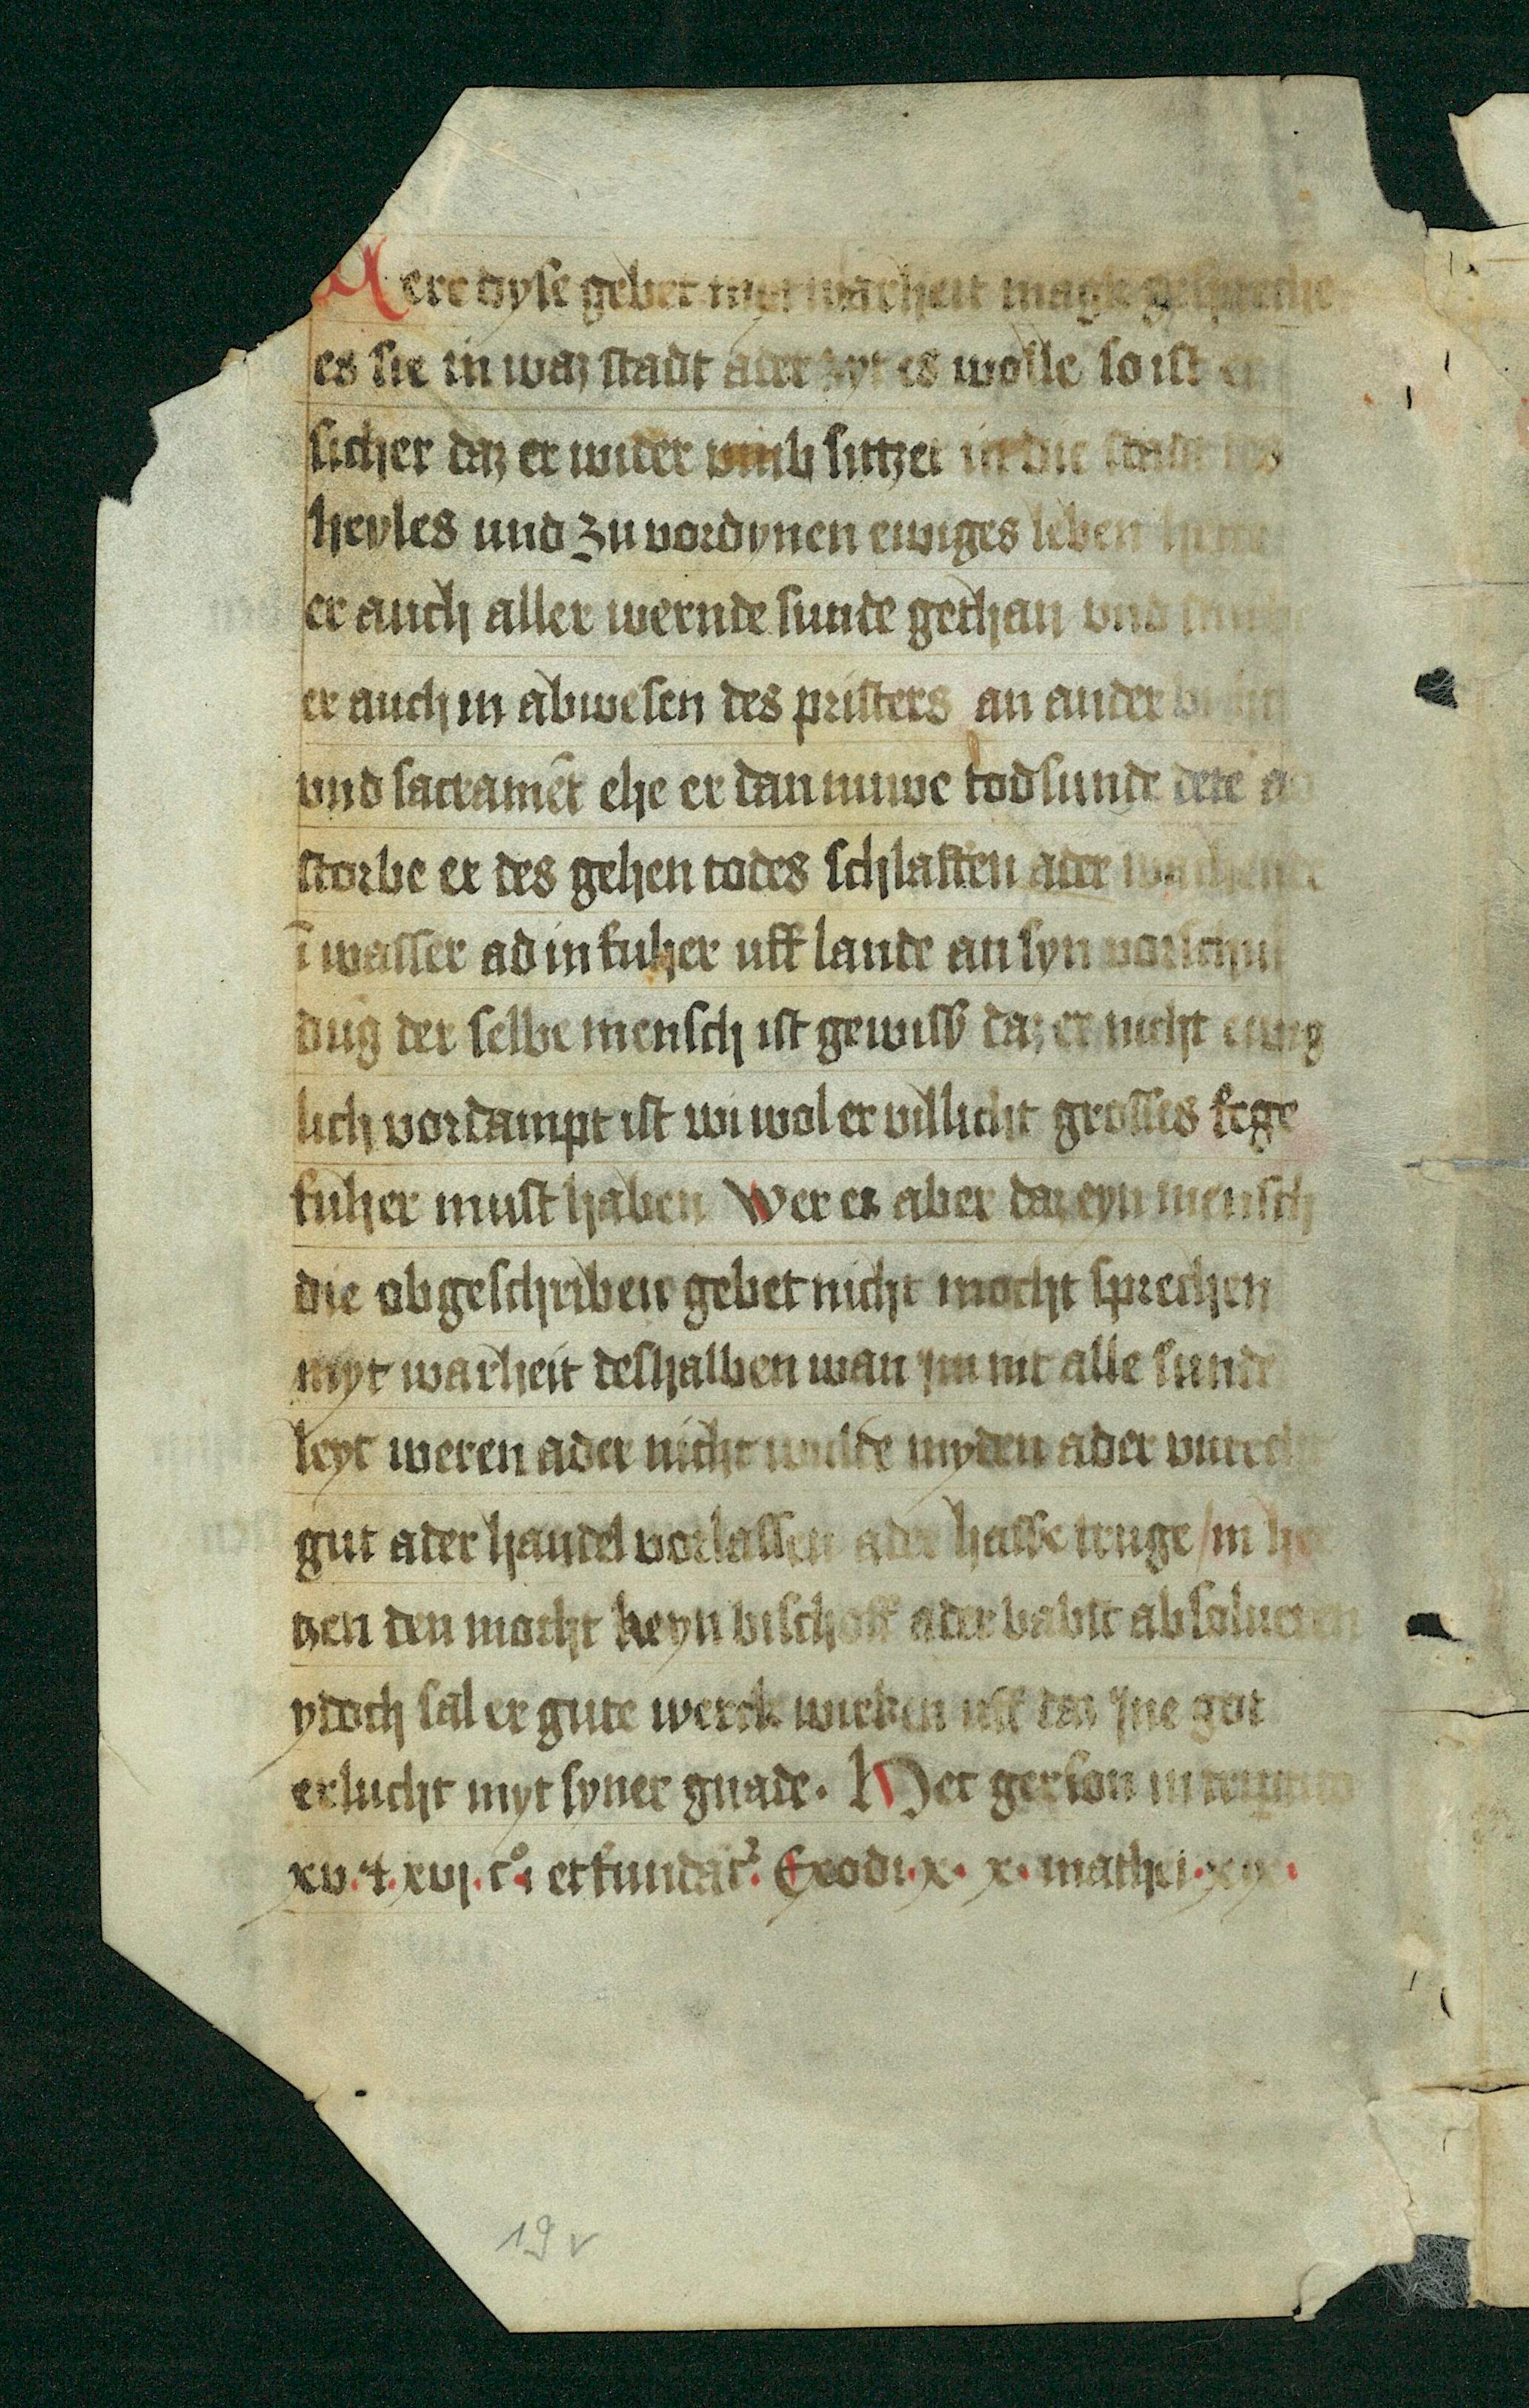 Were dyse gebet myt warheit magk gespreche
es sie in waz stadt ader zyt es wolle so ist er
sicher daz er wider vmb sitzet in die stadt des
heyles und zu vordynen ewiges leben hette
er auch aller wernde sunde gethan vnd sturbe
er auch in abwesen des pristers an ander bicht
vnd sacramēt ehe er dan nuwe todsunde dete ad
storbe er des gehen todes schlaffen ader wachende
ī wasser ad in fuher uff lande an syn vorschul
dūg der selbe mensch ist gewiß daz er nicht ewig
lich vordampt ist wi wol er villicht grosses fege
fuher must haben Wer es aber daz eyn mensch
die obgeschriben gebet nicht mocht sprechen
myt warheit deshalben wan ym nit alle sunde
leyt weren ader nicht wulde myden ader vnrecht
gut ader handel vorlassen ader hasse truge in her
zen den mocht keyn bischoff ader babst absolueren
ydoch sal er gute werck wircken uff daz yne got
erlucht myt syner gnade. Hec gerson in
xv. et. xvj. c° et fundat² Exodi. x. x. mathei. xix.
19 v